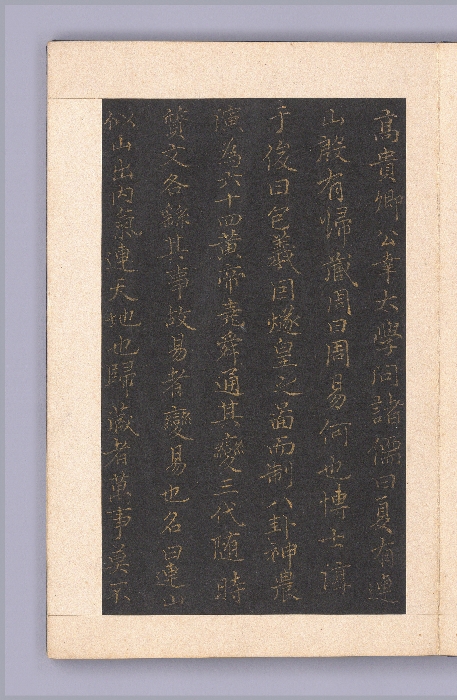 高貴卿公幸太學問諸儒曰夏有連
山殷有歸藏周曰周易何也博士淳
于俊曰包羲因燧皇之啚而制八卦神農
演為六十四黃帝堯舜通其變三代隨時
質文各繇其事故易者變易也名曰連山
似山出內氣連天地也歸藏者萬事莫不